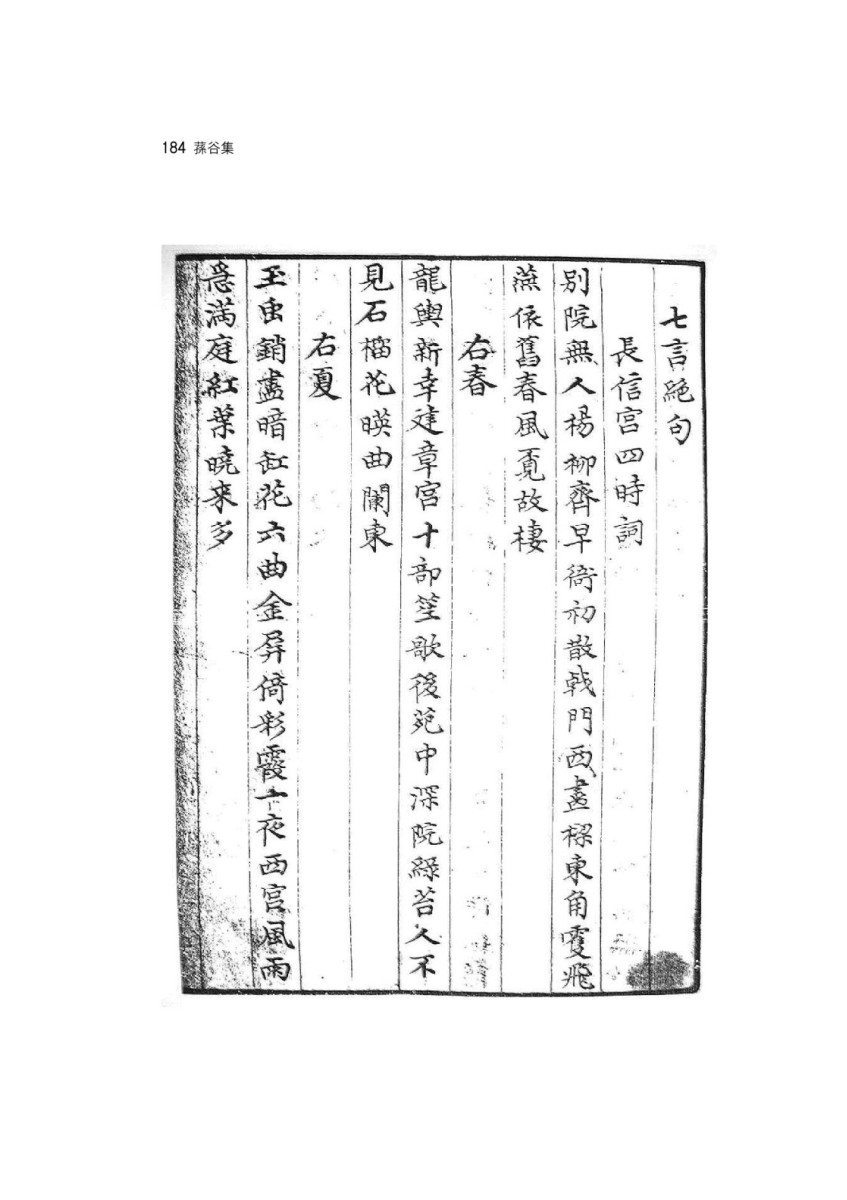 184 蓀谷集
七言絕句
長信宮四時詞
別院無人楊柳齊早衙初散戟門西畫樑東角雙飛
燕依舊春風覓故棲
右春
龍輿新幸建章宮十部笙歌後苑中深院綠苔人不
見石榴花暎曲闌東
右夏
玉虫銷盡暗缸花六曲金屛倚彩霞一夜西宮風雨
急滿庭紅葉曉來多